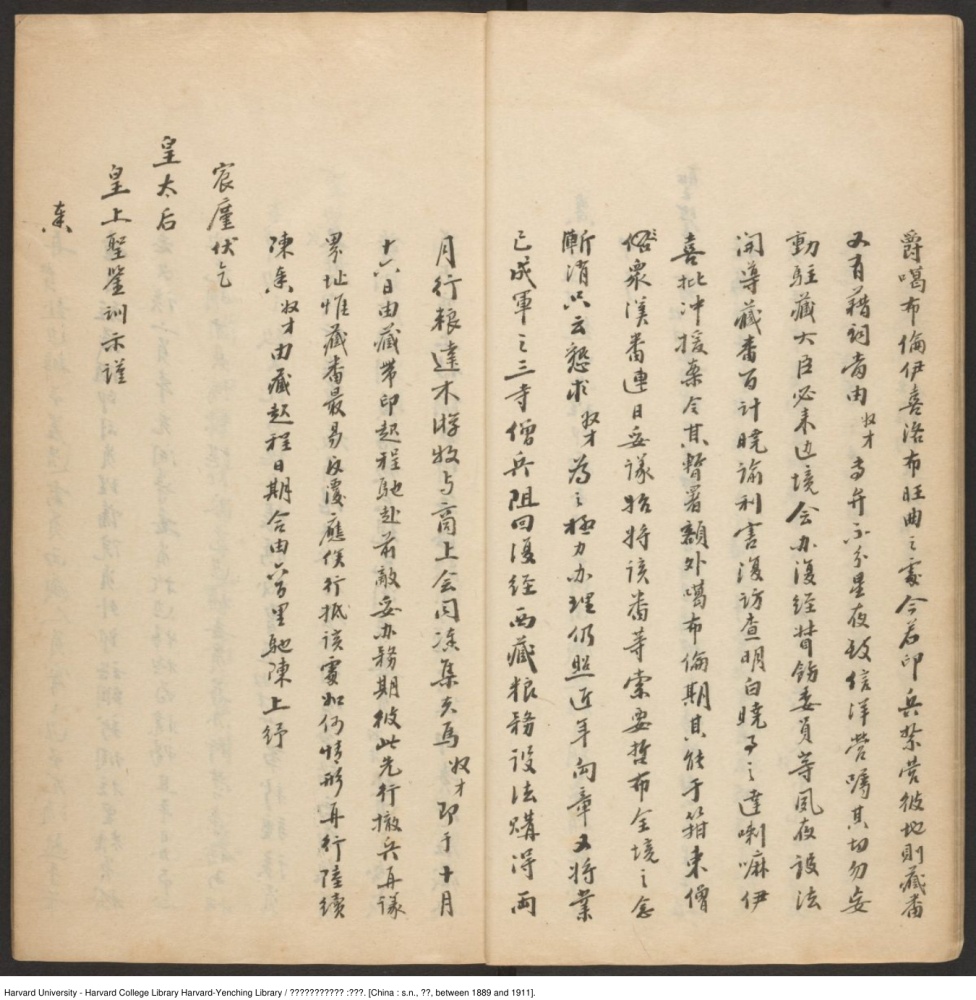 爵噶布倫伊喜洛布旺曲之處今若印兵紮營彼地則藏番
又有藉詞者由奴才專弁不分星夜致信洋營囑其切勿妄
動駐藏大臣必來边境会办復經督飭委員等夙夜設法
開導藏番百計曉諭利害復訪查明白曉事之達喇嘛伊
喜批冲援案令其暫署額外噶布倫期其能于箝束僧
俗眾漢番連日妥議始將該番等索要哲布全境之念
漸消只云懇求奴才為之極力办理仍照近年向章又將業
已成軍之三寺僧兵阻回復經西藏粮務設法購得兩
月行粮達木游牧与商上会同凑集夫馬奴才即于十月
十六日由藏帶印起程馳赴前敵妥办務期彼此先行撤兵再議
界址惟藏番最易反覆應俟行抵該處如何情形再行陸續
陳奏奴才由藏起程日期合由六百里馳陳上紓
宸廑伏乞
皇太后
皇上聖鑒訓示謹
奏
Harvard University - Harvard College Library Harvard-Yenching Library / ??????????? :???. [China : s.n., ??, between 1889 and 1911].